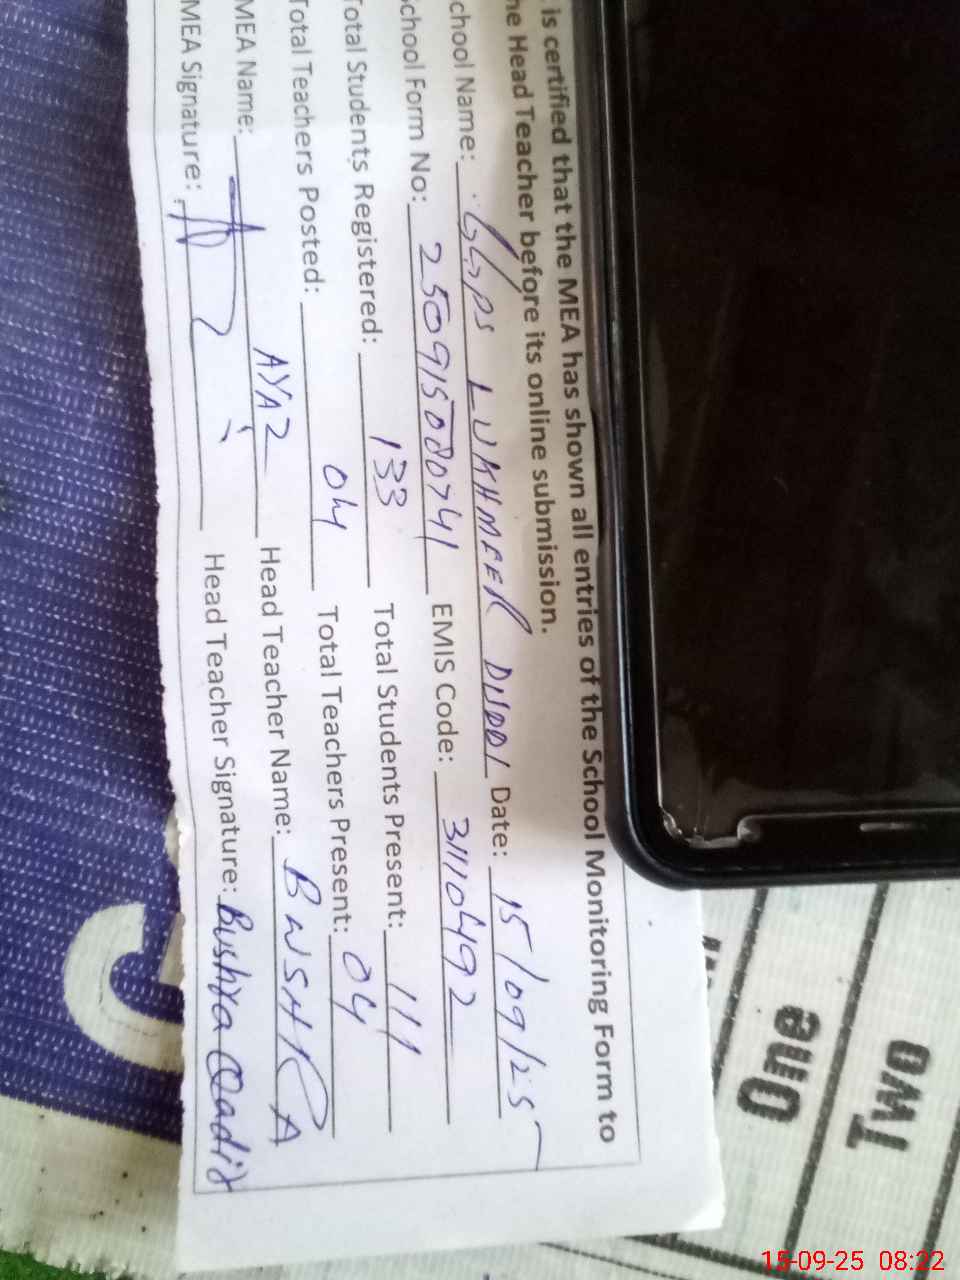 is certified that the MEA has shown all entries of the School Monitoring Form to
he Head Teacher before its online submission.
chool Name: GGPS LUKHMEER DUDDI Date: 15/09/25
chool Form No: 250915080741 EMIS Code: 31110492
Total Students Registered: 133 Total Students Present: 111
Total Teachers Posted: 04 Total Teachers Present: 04
MEA Name: AYAZ Head Teacher Name: BUSHRA
MEA Signature: Head Teacher Signature: Bushra Qadir
One
Two
15-09-25 08:22